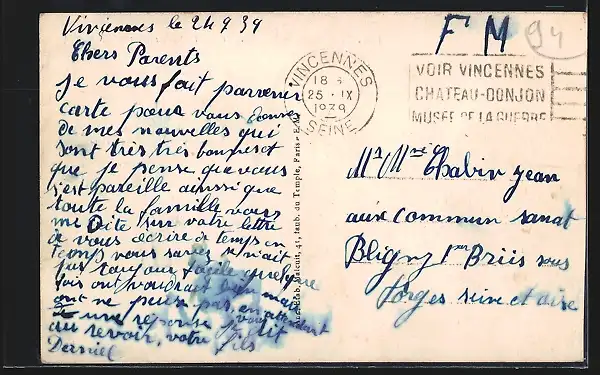 Vincennes le 24 9 39
Chers Parents
je vous fait parvenir
carte pour vous donner
de mes nouvelles qui
sont très très bonnes et
que je pense que vous
c'est pareille aussi que
toute la famille vous
me Dite sur votre lettre
de vous écrire de temps en
temps vous savez se n'ait
pas toujours facile quelque
fois on voudrait bien mais
ont ne peux pas, en attendant
une réponse je vous dit
au revoir, votre fils
Daniel
F M
94
VINCENNES
18
25 · IX
1939
SEINE
VOIR VINCENNES
CHATEAU-DONJON
MUSÉE DE LA GUERRE
41, faub. du Temple, Paris
Mr Mme Chabin Jean
aux Commun sanat
Bligny par Briis sous
Forges seine et oise